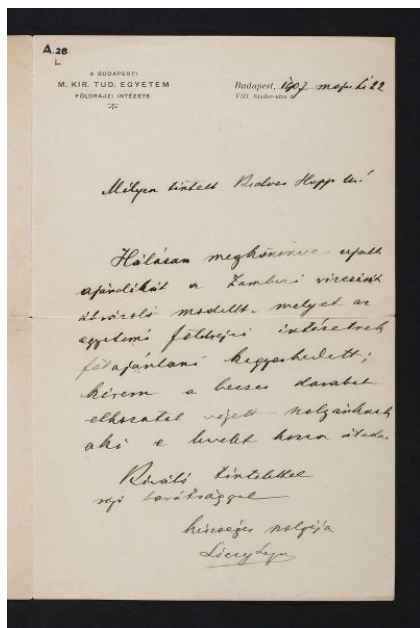 A.28
L
A BUDAPESTI
M. KIR. TUD. EGYETEM
FÖLDRAJZI INTÉZETE
Budapest, 1907 május hó 22
VIII. Sándor-utca 8
Mélyen tisztelt Kedves Hopp Úr!
Hálásan megköszönve
ajándékát a Zambezi vizesését
ábrázoló modellt, melyet az
egyetemi földrajzi intézetnek
felajánlani kegyeskedett;
kérem a becses darabot
elhozatal végett szolgánknak
aki e levelet hozza átadni
Kiváló tisztelettel
régi barátsággal
készséges szolgája
Lóczy Lajos